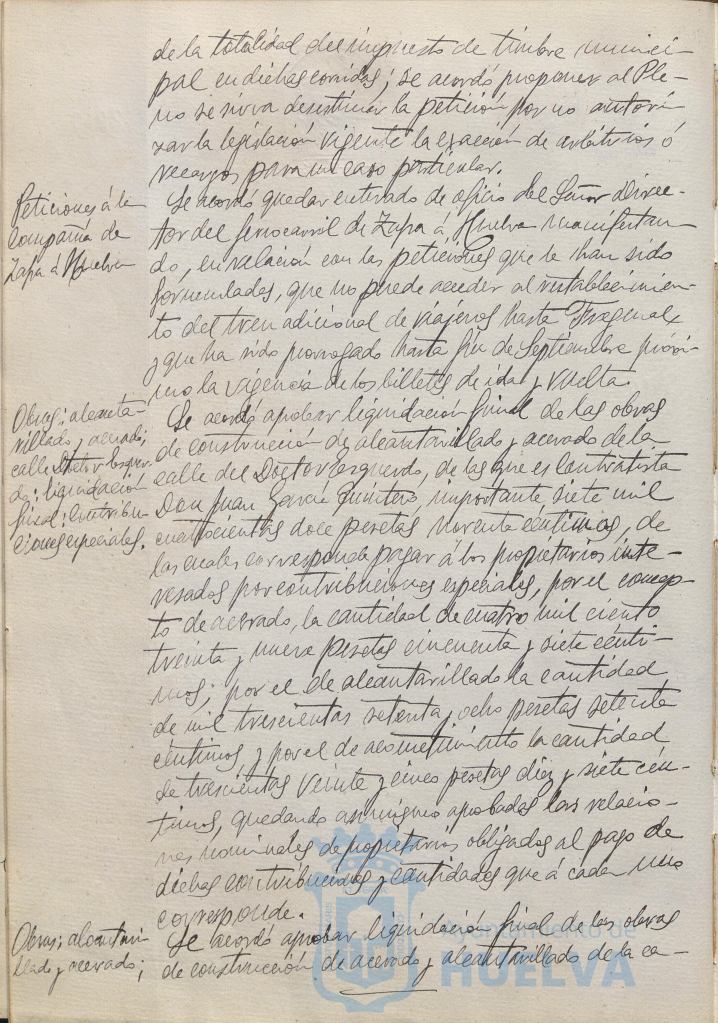 de la totalidad del impuesto de timbre munici-
pal en dichas corridas; se acordó proponer al Ple-
no se sirva desestimar la petición por no autori-
zar la legislación vigente la exacción de arbitrios ó
recargos para un caso particular.
Peticiones á la
Compañía de
Zafra á Huelva
Se acordó quedar enterado de oficio del Señor Direc-
tor del ferrocarril de Zafra á Huelva manifestan-
do, en relación con las peticiones que le han sido
formuladas, que no puede acceder al restablecimien-
to del tren adicional de viajeros hasta Fregenal,
y que ha sido prorrogado hasta fin de Septiembre próxi-
mo la vigencia de los billetes de ida y vuelta.
Obras: alcanta-
rillado y acerado;
calle Doctor Ezquer-
do: liquidación
final: Contribu-
ciones especiales.
Se acordó aprobar liquidación final de las obras
de construcción de alcantarillado y acerado de la
calle del Doctor Ezquerdo, de las que es Contratista
Don Juan García Quintero, importante siete mil
cuatrocientas doce pesetas noventa céntimos, de
las cuales corresponde pagar á los propietarios inte-
resados por contribuciones especiales, por el concep-
to de acerado, la cantidad de cuatro mil ciento
treinta y nueve pesetas cincuenta y siete cénti-
mos; por el de alcantarillado la cantidad
de mil trescientas setenta y ocho pesetas setenta
céntimos, y por el de acometimiento la cantidad
de trescientas veinte y cinco pesetas diez y siete cén-
timos, quedando asimismo aprobadas las relacio-
nes nominales de propietarios obligados al pago de
dichas contribuciones y cantidades que á cada uno
corresponde.
Obras: alcantari-
llado y acerado;
Se acordó aprobar liquidación final de las obras
de construcción de acerado y alcantarillado de la ca-
Ayuntamiento de
HUELVA